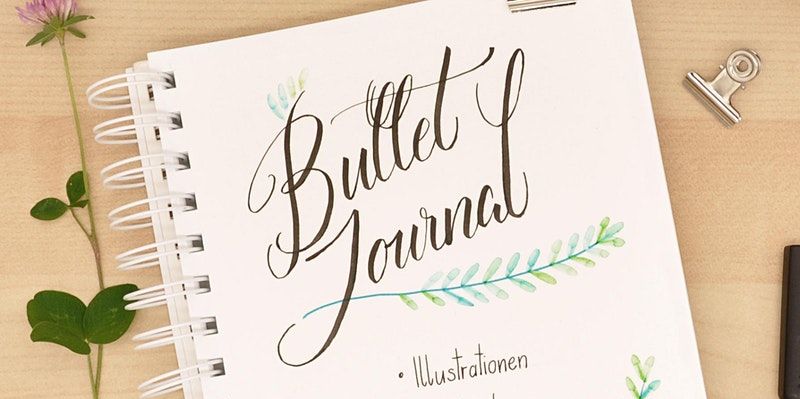 Bullet
Journal
• Illustrationen